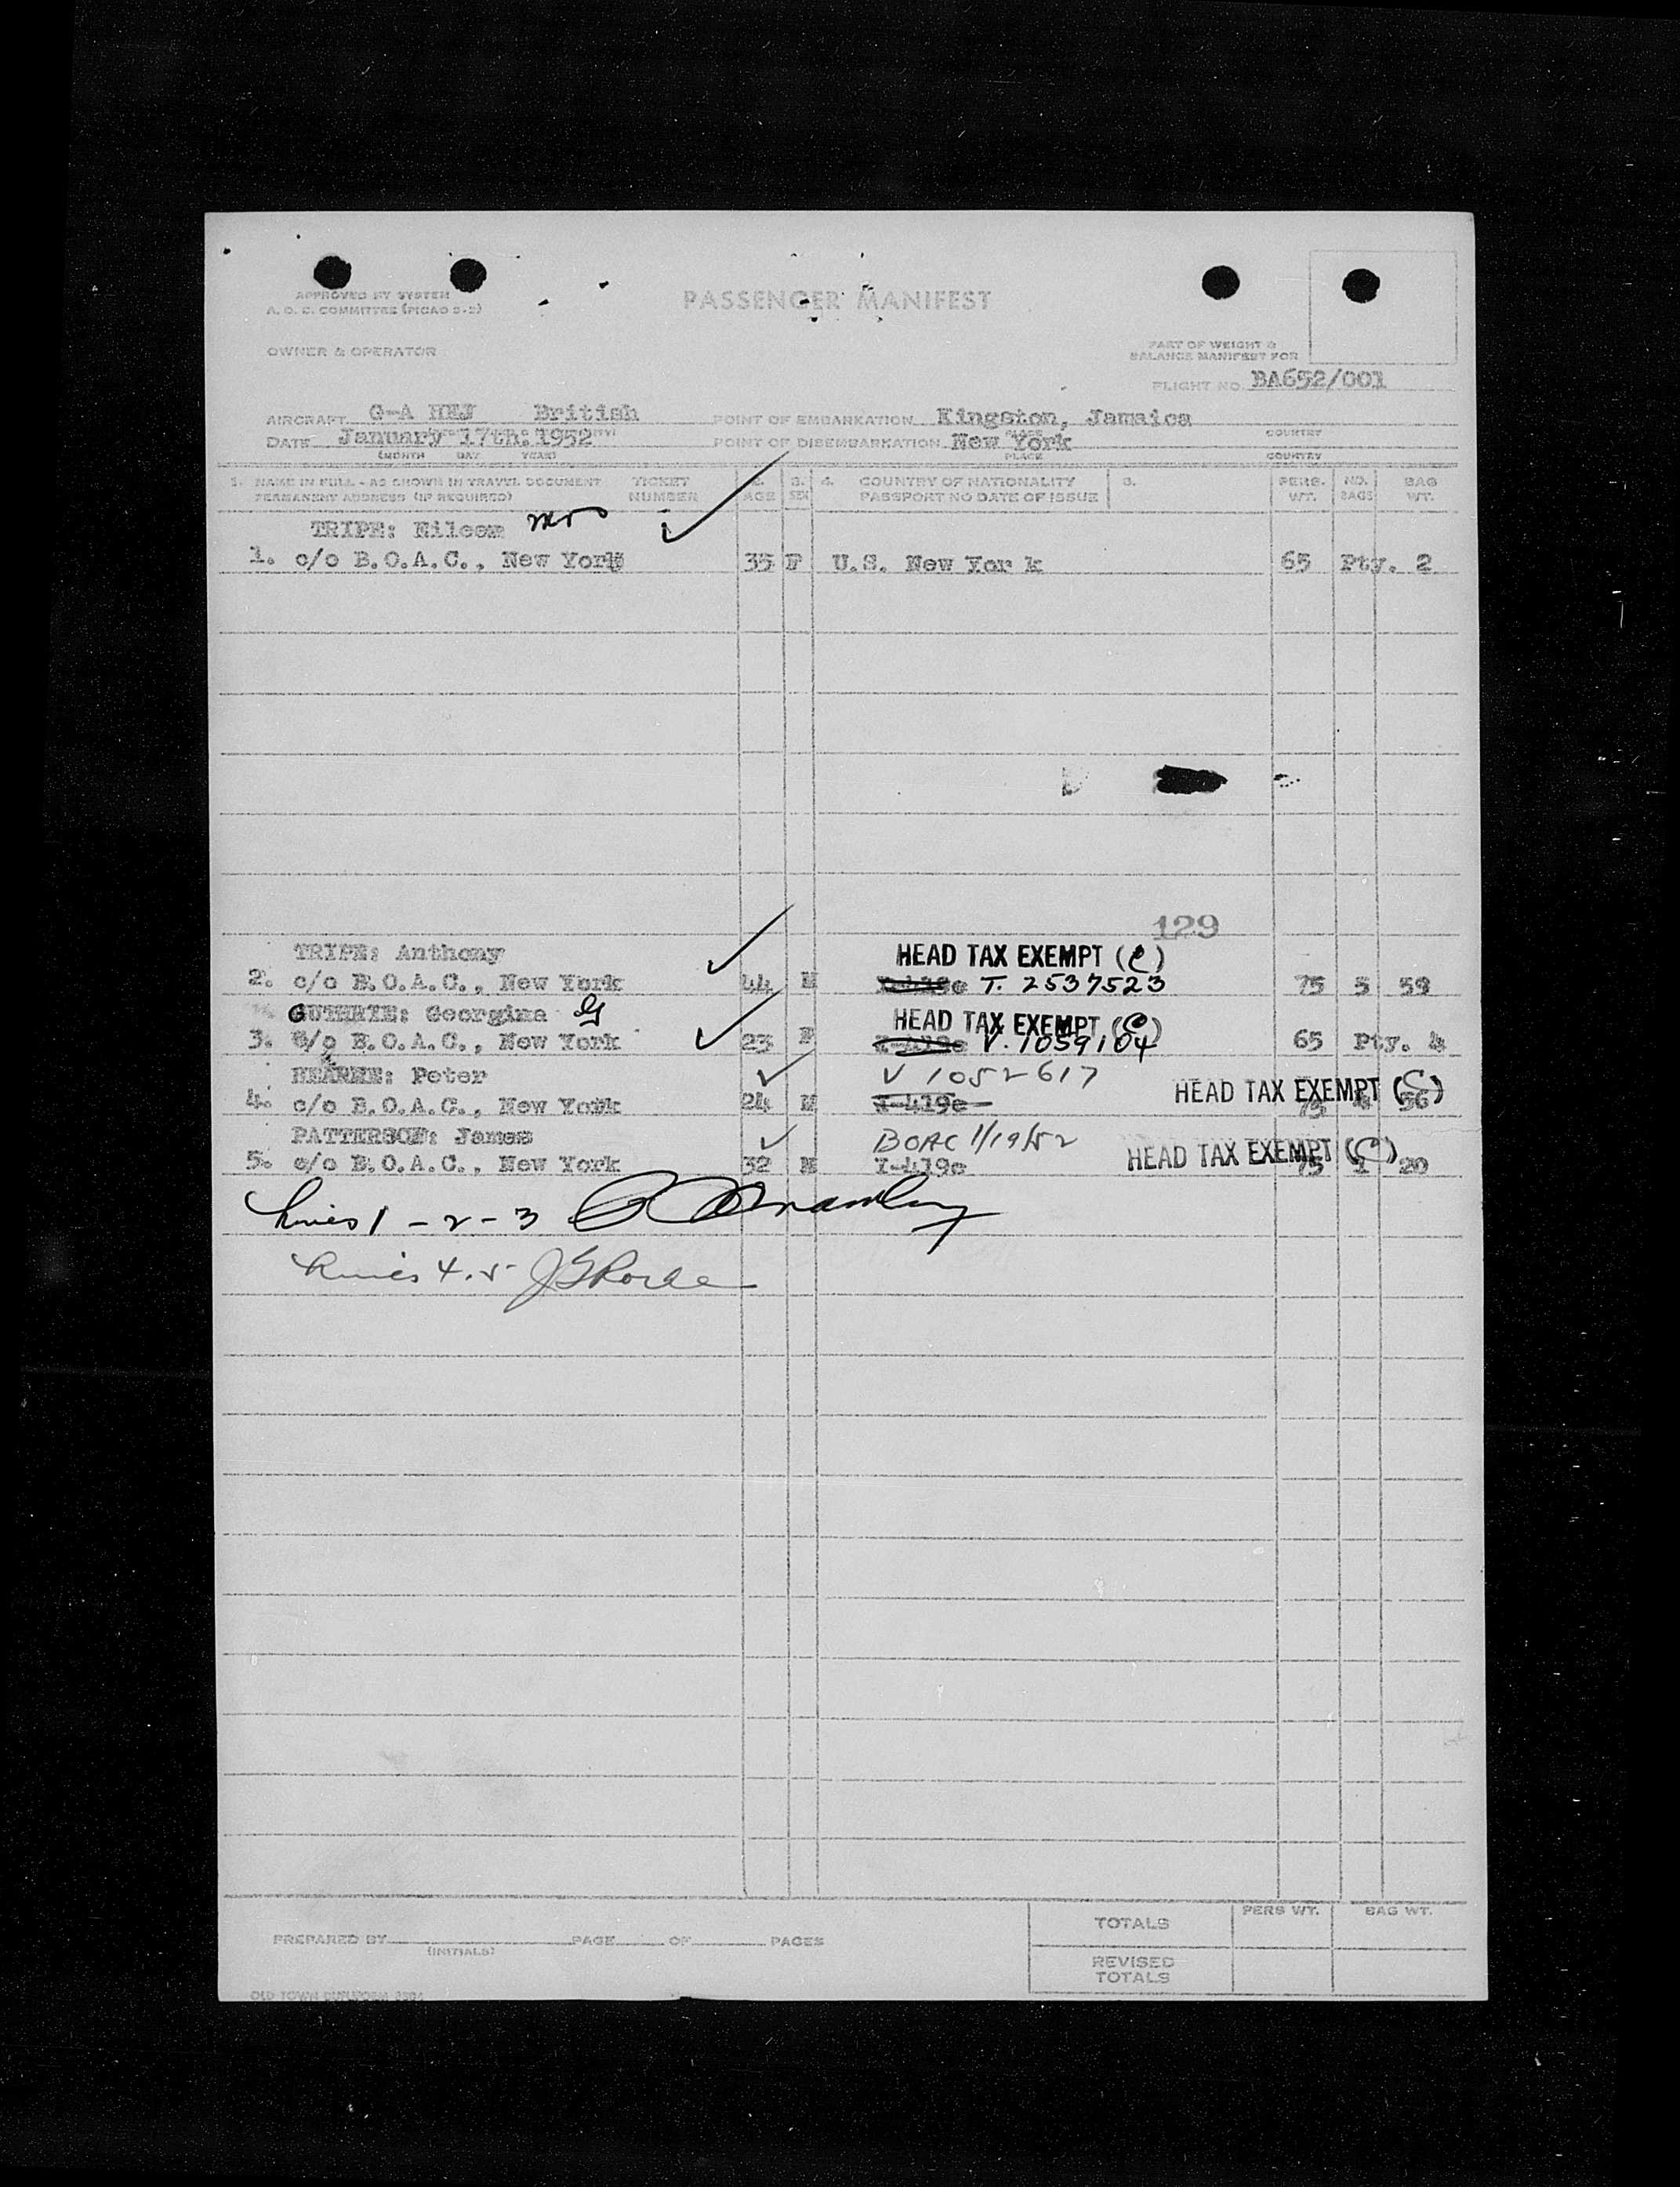 APPROVED BY SYSTEM
A. O. C. COMMITTEE (PICAO 2-2)
PASSENGER MANIFEST
OWNER & OPERATOR
PART OF WEIGHT &
BALANCE MANIFEST FOR
FLIGHT NO. BA652/001
AIRCRAFT G-A HEJ British POINT OF EMBARKATION Kingston, Jamaica
PLACE COUNTRY
DATE January 17th: 1952 POINT OF DISEMBARKATION New York
(MONTH DAY YEAR) PLACE COUNTRY
1. NAME IN FULL - AS SHOWN IN TRAVEL DOCUMENT TICKET 2. 3. 4. COUNTRY OF NATIONALITY 5. PERS. NO. BAG
PERMANENT ADDRESS (IF REQUIRED) NUMBER AGE SEX PASSPORT NO DATE OF ISSUE WT. BAGS WT.
TRIPE: Eileen mrs
1. c/o B.O.A.C., New York 35 F U.S. New Yor k 65 Pty. 2
129
TRIPE: Anthony HEAD TAX EXEMPT (C)
2. c/o B.O.A.C., New York 44 M T. 2537523 75 5 59
GUTHRIE: Georgina G HEAD TAX EXEMPT (C)
3. c/o B.O.A.C., New York 23 F V. 1059104 65 Pty. 4
HEARNE: Peter V 1052617 HEAD TAX EXEMPT (C)
4. c/o B.O.A.C., New York 24 M I-419c 75 56
PATTERSON: James BOAC 1/19/52 HEAD TAX EXEMPT (C)
5. c/o B.O.A.C., New York 32 M I-419c 75 1 20
Lines 1 - 2 - 3
Lines 4.5
PREPARED BY PAGE OF PAGES
(INITIALS)
TOTALS PERS WT. BAG WT.
REVISED
TOTALS
OLD TOWN DUPLIFORM